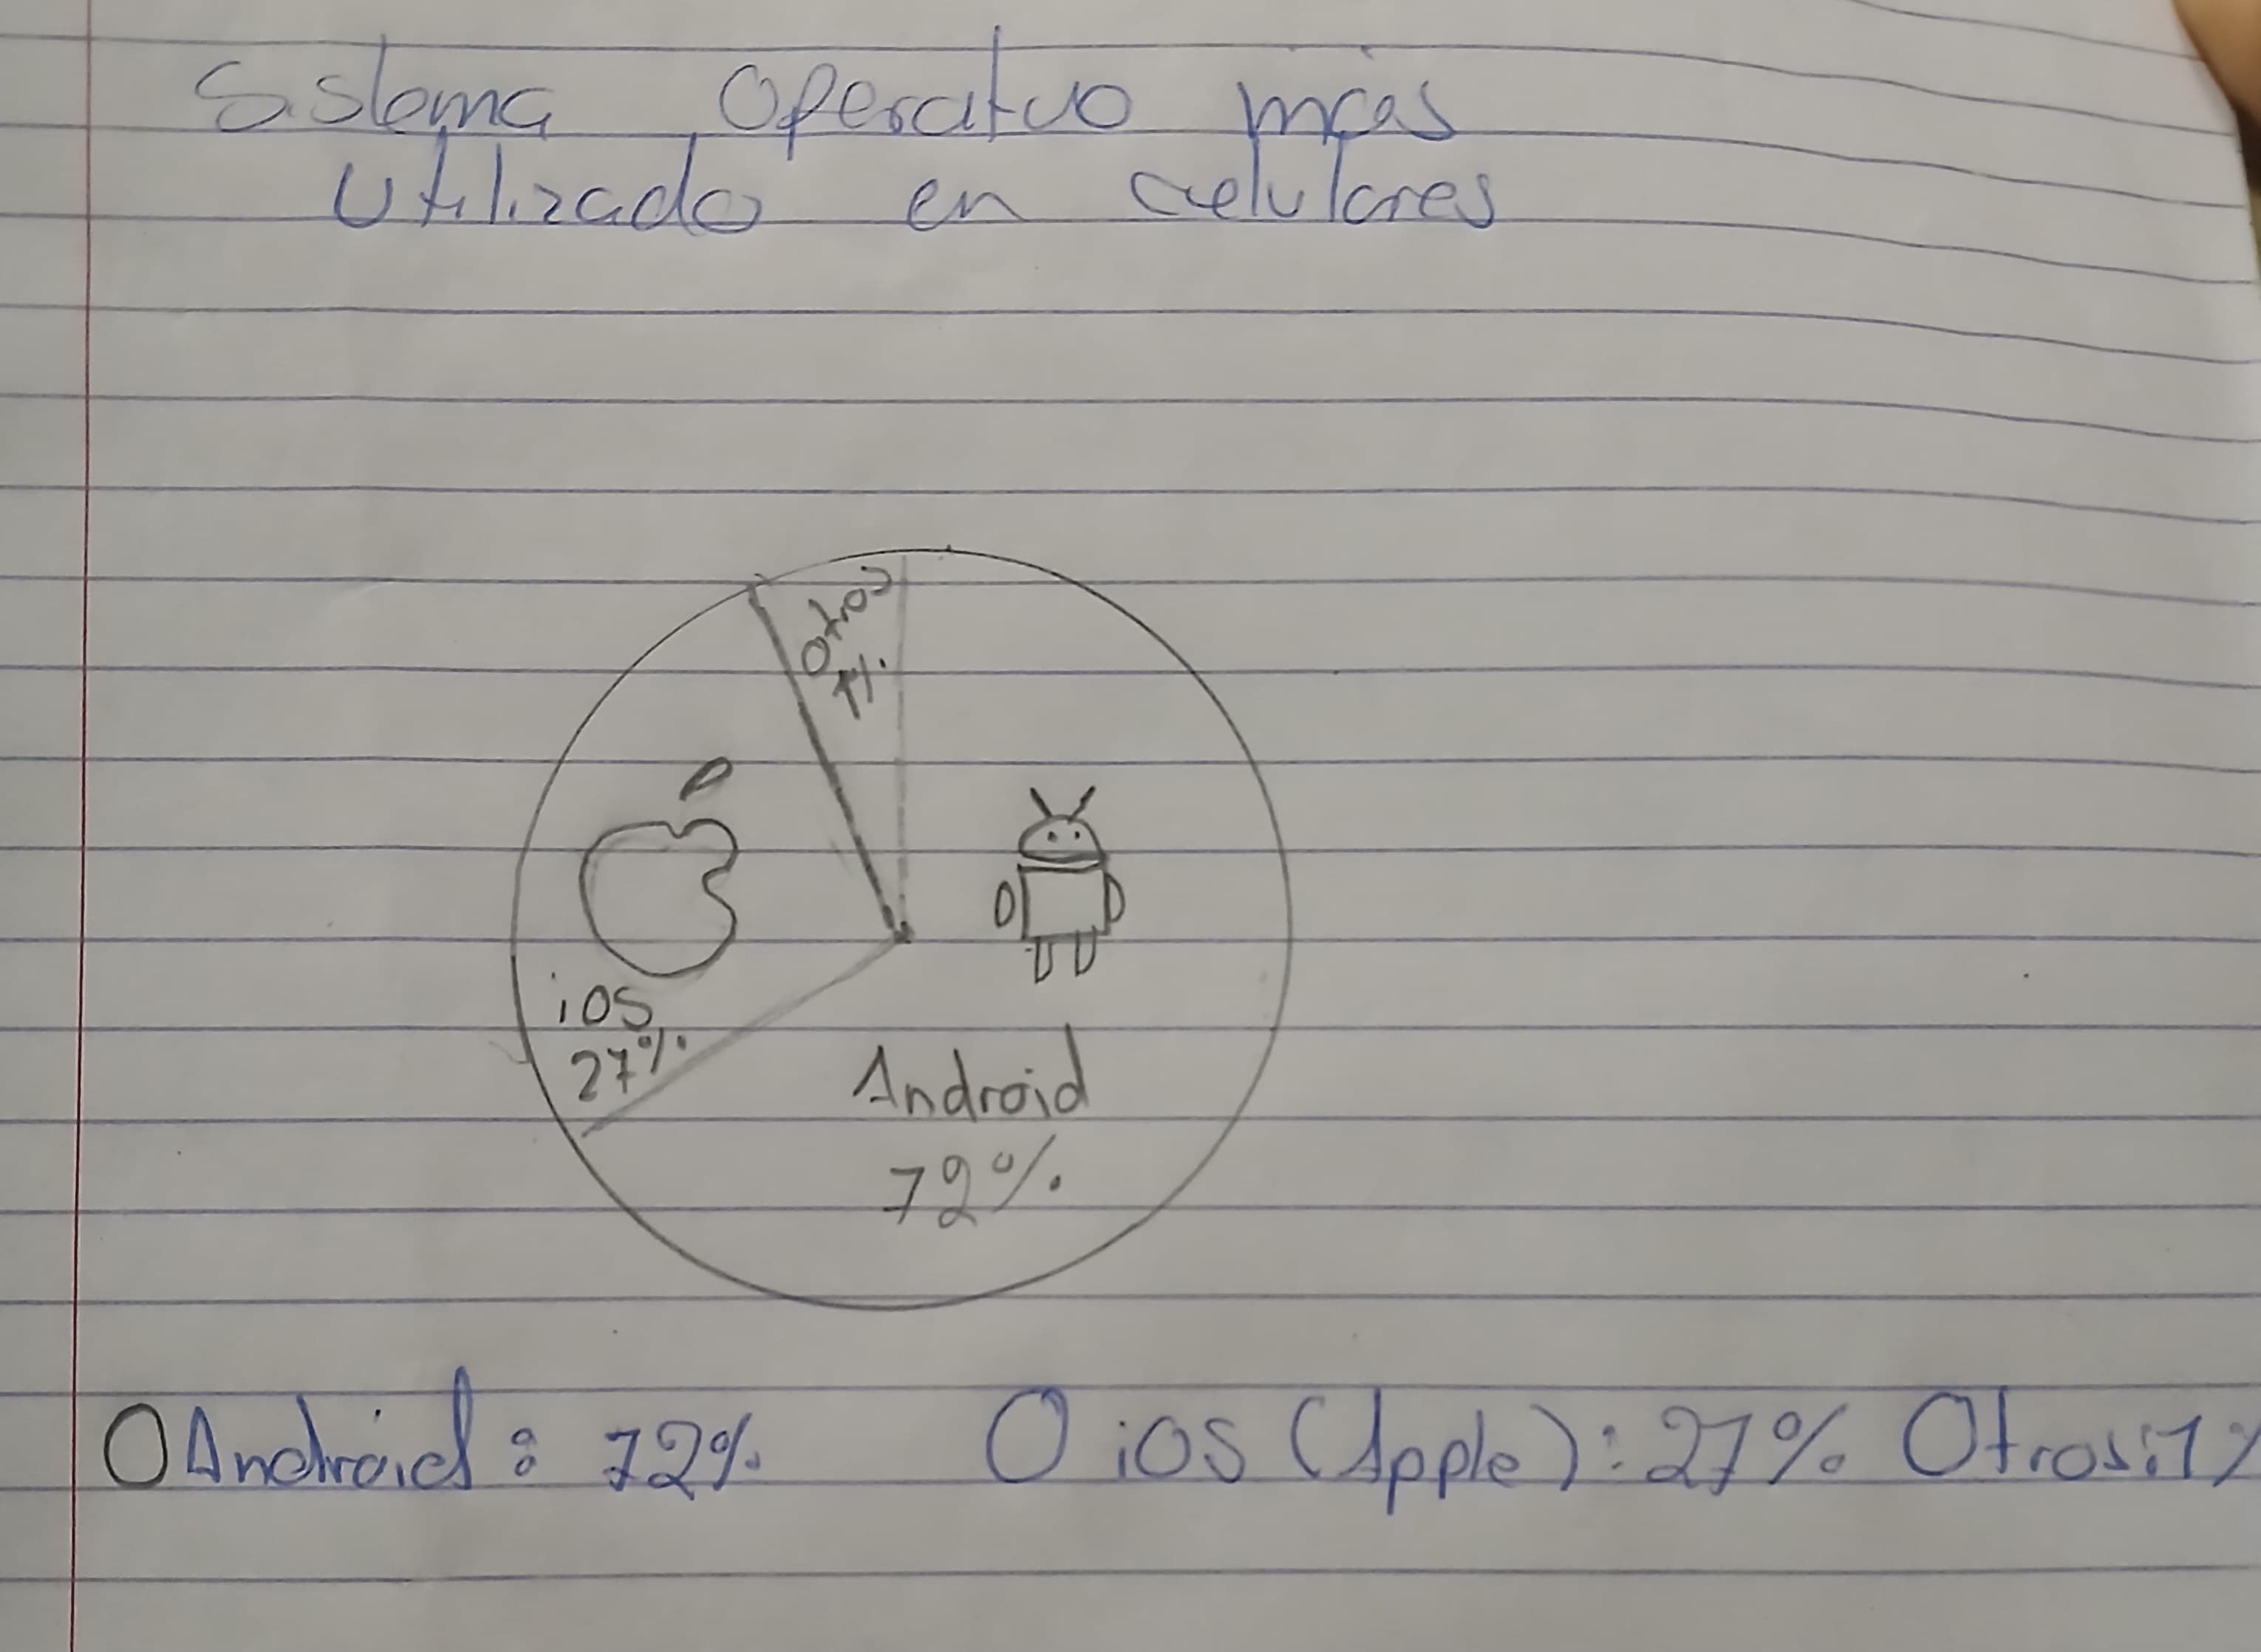 Sistema Operativo más
Utilizado en celulares
Otros
1%
iOS
27%
Android
72%
Android: 72% iOS (Apple): 27% Otros: 1%